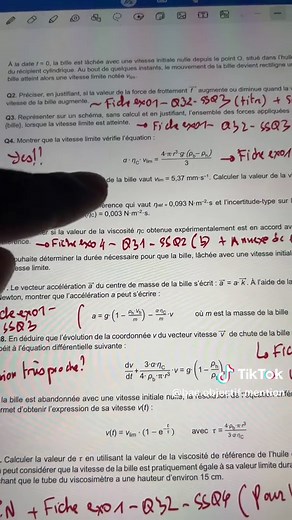 À la date t = 0, la bille est lâchée avec une vitesse initiale nulle depuis le point O, situé dans l'huile
du récipient cylindrique. Au bout de quelques instants, le mouvement de la bille devient rectiligne u
bille atteint alors une vitesse limite notée vlim.
Q2. Préciser, en justifiant, si la valeur de la force de frottement f augmente ou diminue quand la v
vitesse de la bille augmente. ~ Fiche exo1 - Q32 - SSQ3 (titre) + S
Q3. Représenter sur un schéma, sans calcul et en justifiant, l'ensemble des forces appliquées
(bille), lorsque la vitesse limite est atteinte. → Fiche exo1 - Q32 - SSQ3
Q4. Montrer que la vitesse limite vérifie l'équation :
a · ηC · vlim = 4·π·r²·g·(ρb − ρh) / 3 → Fiche exo1
de la bille vaut vlim = 5,37 mm·s⁻¹. Calculer la valeur de la v
érence qui vaut ηref = 0,093 N·m⁻²·s et l'incertitude-type sur
C) = 0,003 N·m⁻²·s.
r si la valeur de la viscosité ηC obtenue expérimentalement est en accord av
érence. → Fiche exo 4 - Q31 - SSQ2 (b) + Annexe de
ouhaite déterminer la durée nécessaire pour que la bille, lâchée avec une vitesse initiale
esse limite.
. Le vecteur accélération a du centre de masse de la bille s'écrit : a = a·k. À l'aide de la
ewton, montrer que l'accélération a peut s'écrire :
che exo1-
SSQ3
a = g·(1 − ρh·Vb / m) − a·ηC / m · v où m est la masse de la bille
8. En déduire que l'évolution de la coordonnée v du vecteur vitesse v de chute de la bille
béit à l'équation différentielle suivante :
dv/dt + 3·a·ηC / 4·ρb·π·r² · v = g·(1 − ρh/ρb)
TikTok
la bille est abandonnée avec une vitesse initiale nulle,
ermet d'obtenir l'expression de sa vitesse v(t) :
v(t) = vlim · (1 − e^(−t/τ)) avec τ = 4·ρb·π·r² / 3·a·ηC
. Calculer la valeur de τ en utilisant la valeur de la viscosité de référence de l'huile
peut considérer que la vitesse de la bille est pratiquement égale à sa valeur limite dura
chant que le tube du viscosimètre a une hauteur d'environ 15 cm.
+ Fiche exo1 - Q32 - SSQ4 (Pour